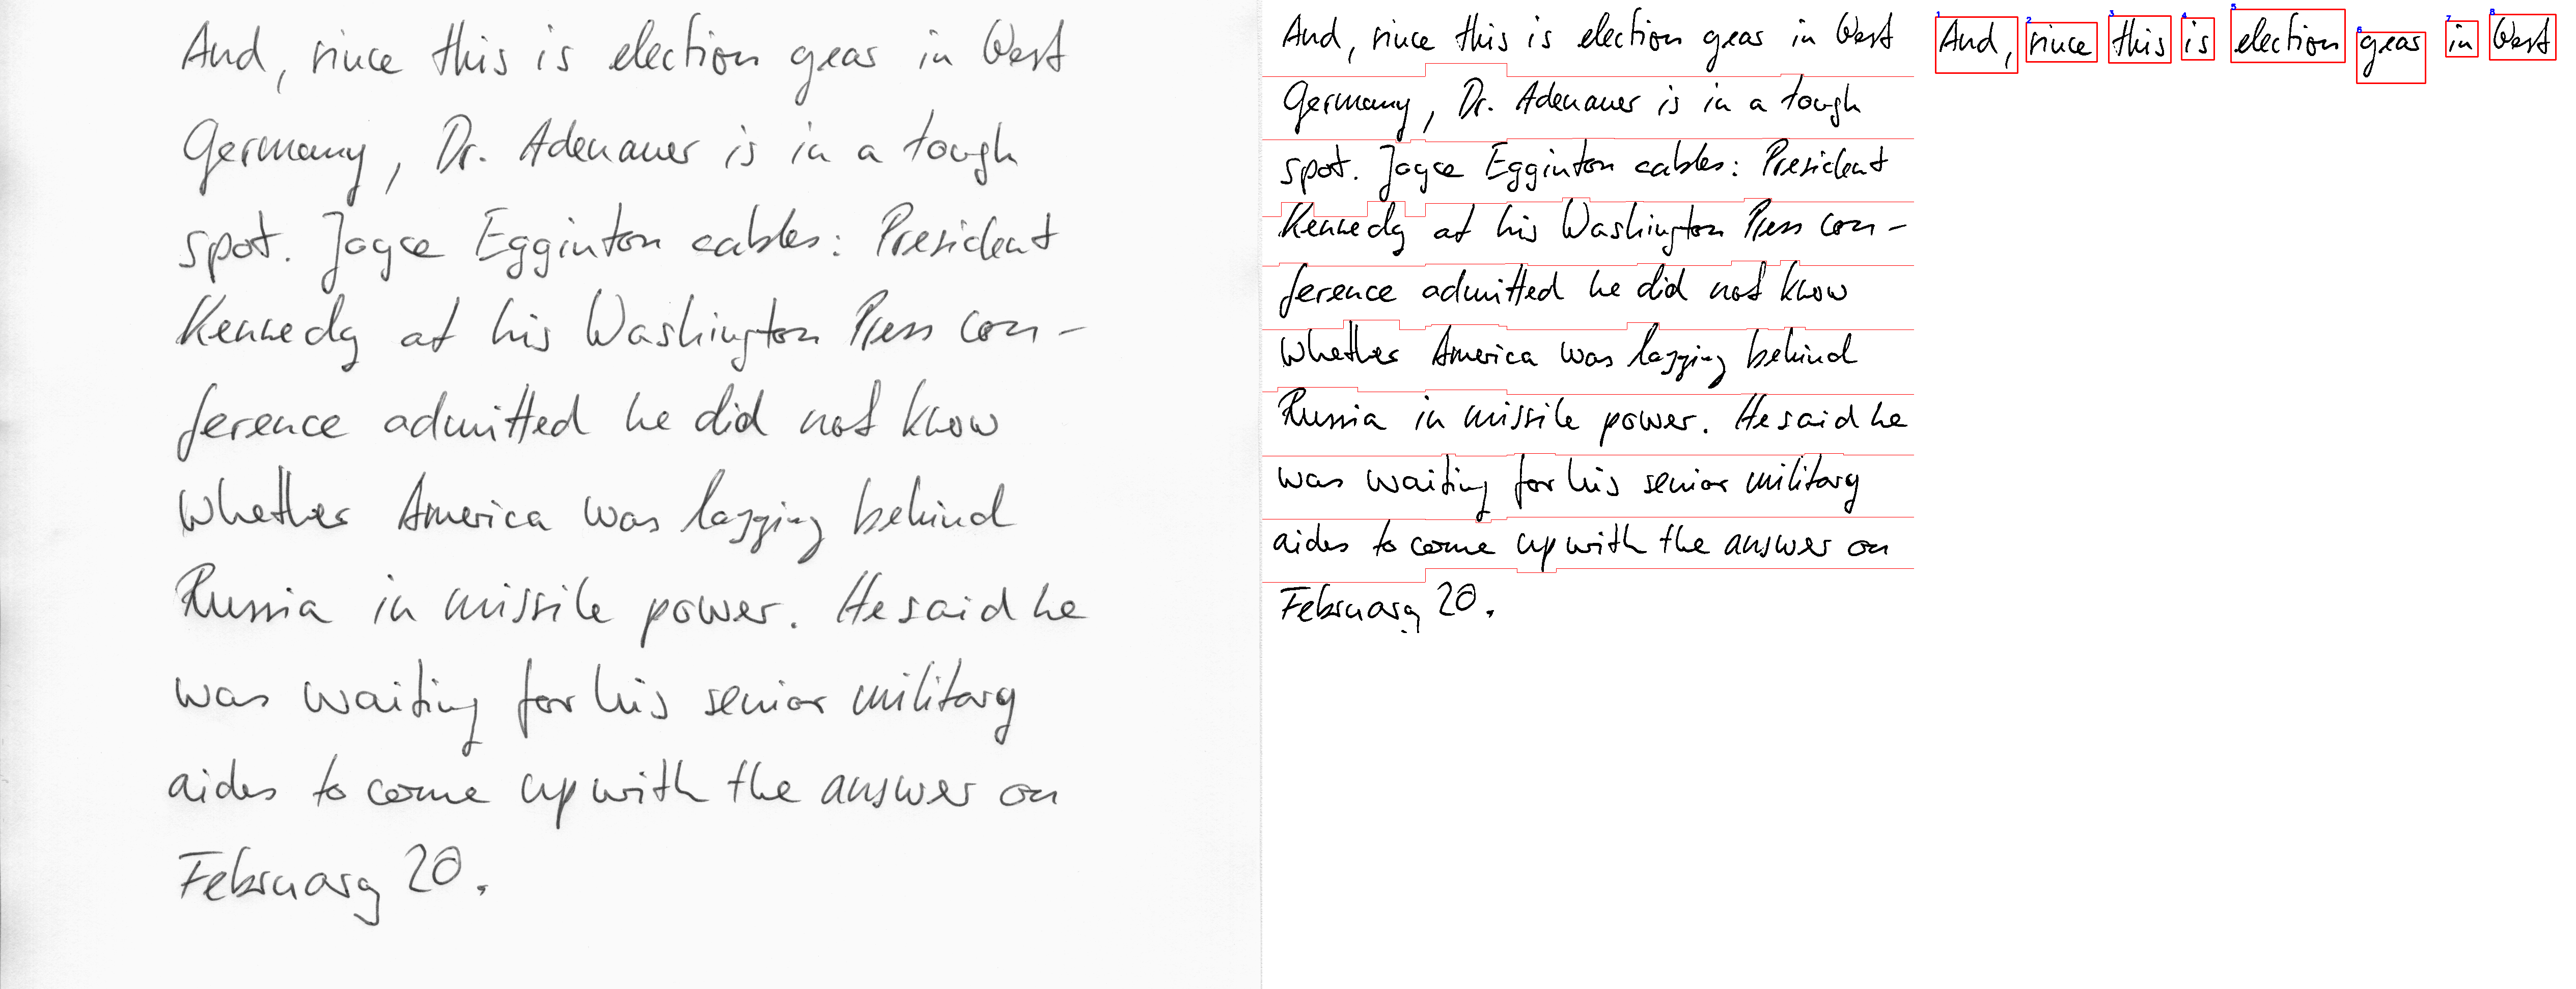 And, since this is election year in West
Germany, Dr. Adenauer is in a tough
spot. Joyce Egginton cables: President
Kennedy at his Washington Press con-
ference admitted he did not know
whether America was lagging behind
Russia in missile power. He said he
was waiting for his senior military
aides to come up with the answer on
February 20.
And, since this is election year in West
Germany, Dr. Adenauer is in a tough
spot. Joyce Egginton cables: President
Kennedy at his Washington Press con-
ference admitted he did not know
whether America was lagging behind
Russia in missile power. He said he
was waiting for his senior military
aides to come up with the answer on
February 20.
1 2 3 4 5 6 7 8
And, since this is election year in West